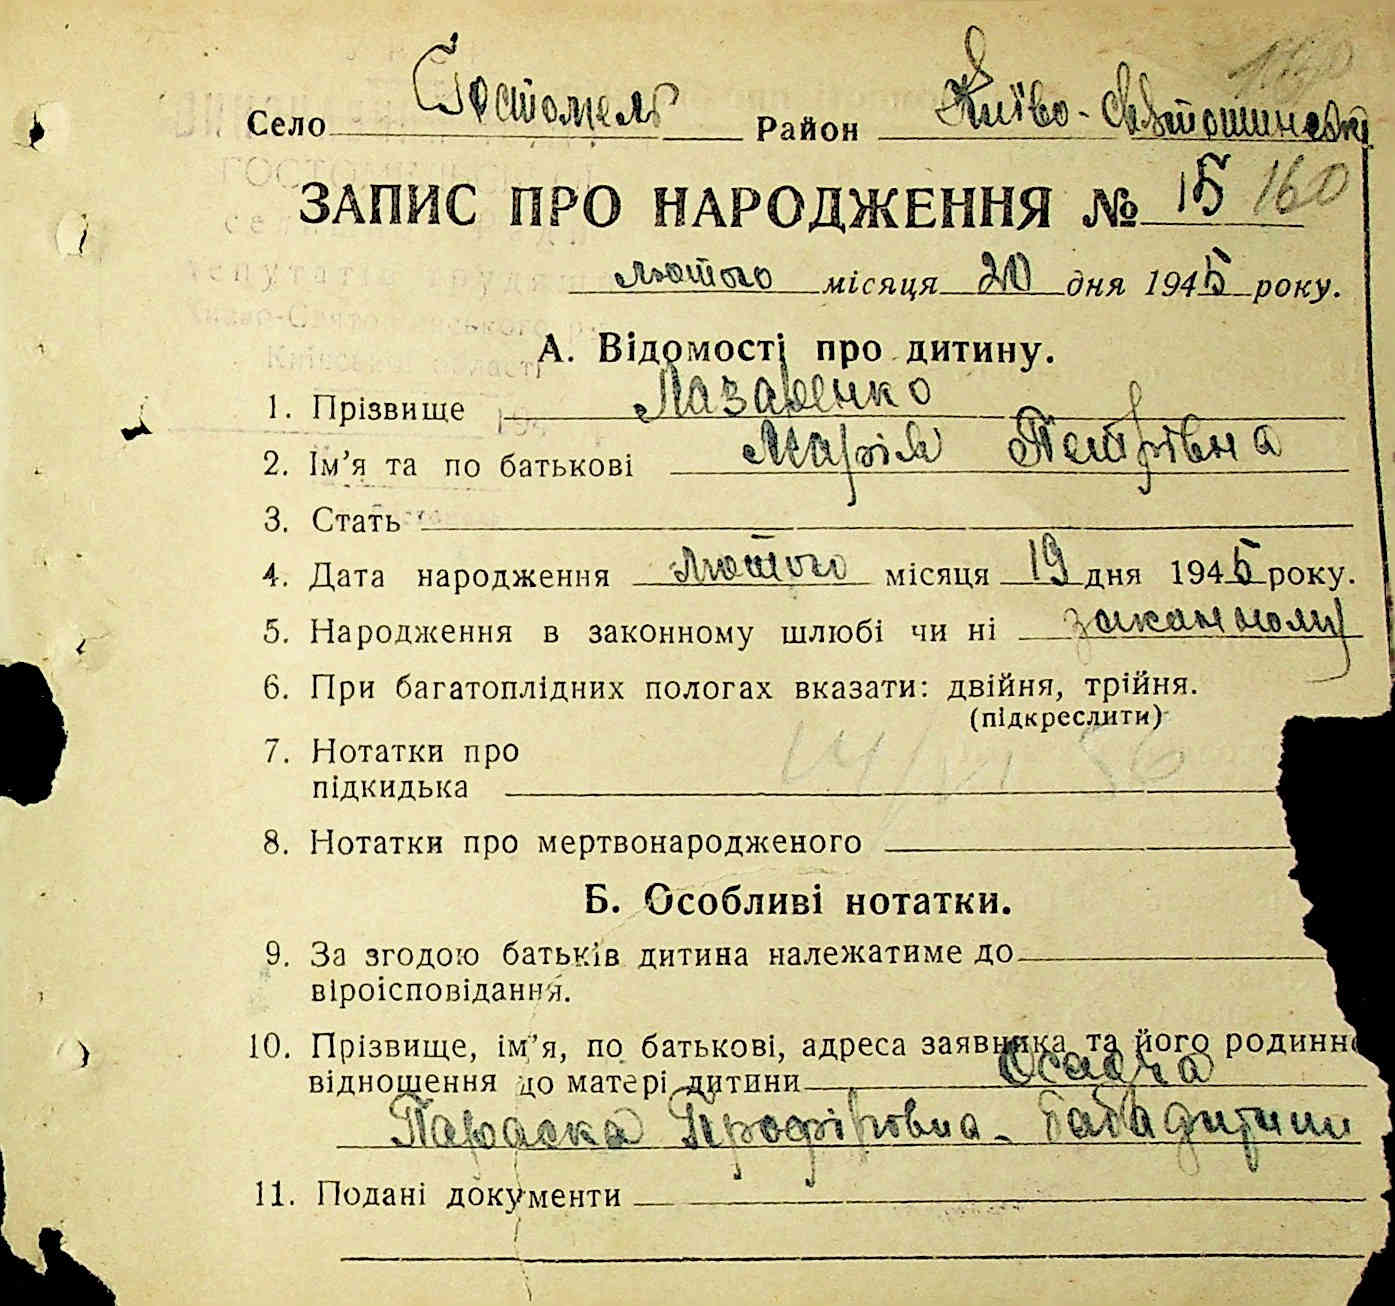 Село Гостомель Район Київо-Святошинськ
ЗАПИС ПРО НАРОДЖЕННЯ № 15 160
лютого місяця 20 дня 1945 року.
А. Відомості про дитину.
1. Прізвище Лазаренко
2. Ім'я та по батькові Марія Петрівна
3. Стать
4. Дата народження лютого місяця 19 дня 1945 року.
5. Народження в законному шлюбі чи ні законному
6. При багатоплідних пологах вказати: двійня, трійня.
(підкреслити)
7. Нотатки про
підкидька
8. Нотатки про мертвонародженого
Б. Особливі нотатки.
9. За згодою батьків дитина належатиме до
віроісповідання.
10. Прізвище, ім'я, по батькові, адреса заявника та його родинне
відношення до матері дитини Осадча
Параска Профірівна - баба дитини
11. Подані документи